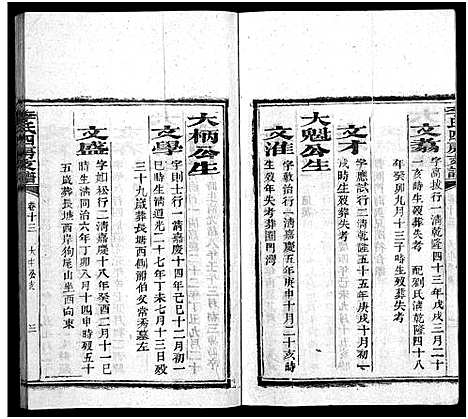 李氏四房支譜
文荔
字高拔行一清乾隆四十三年戊戌三月二十
一亥時生歿葬失考 配劉氏清乾隆四十八
年癸卯九月十三子時生歿葬失考
文才
字應試行二清乾隆五十五年庚戌十月初一
戌時生歿葬失考
大魁公生
文淮
字敦治行一清嘉慶五年庚申十月二十亥時
生歿年失考葬團門灣
大柄公生
文學
字則士行一清嘉慶十四年己巳十二月初一
巳時生清道光二十七年丁未十月十三日歿
三十九歲葬長塘西斜船伯父常秀墓左
文盛
字如松行二清嘉慶十八年癸酉二月十一巳
時生清同治六年丁卯八月十四申時歿五十
五歲葬長塘西岸狗尾山坐西向東
李氏四房支譜
卷十三